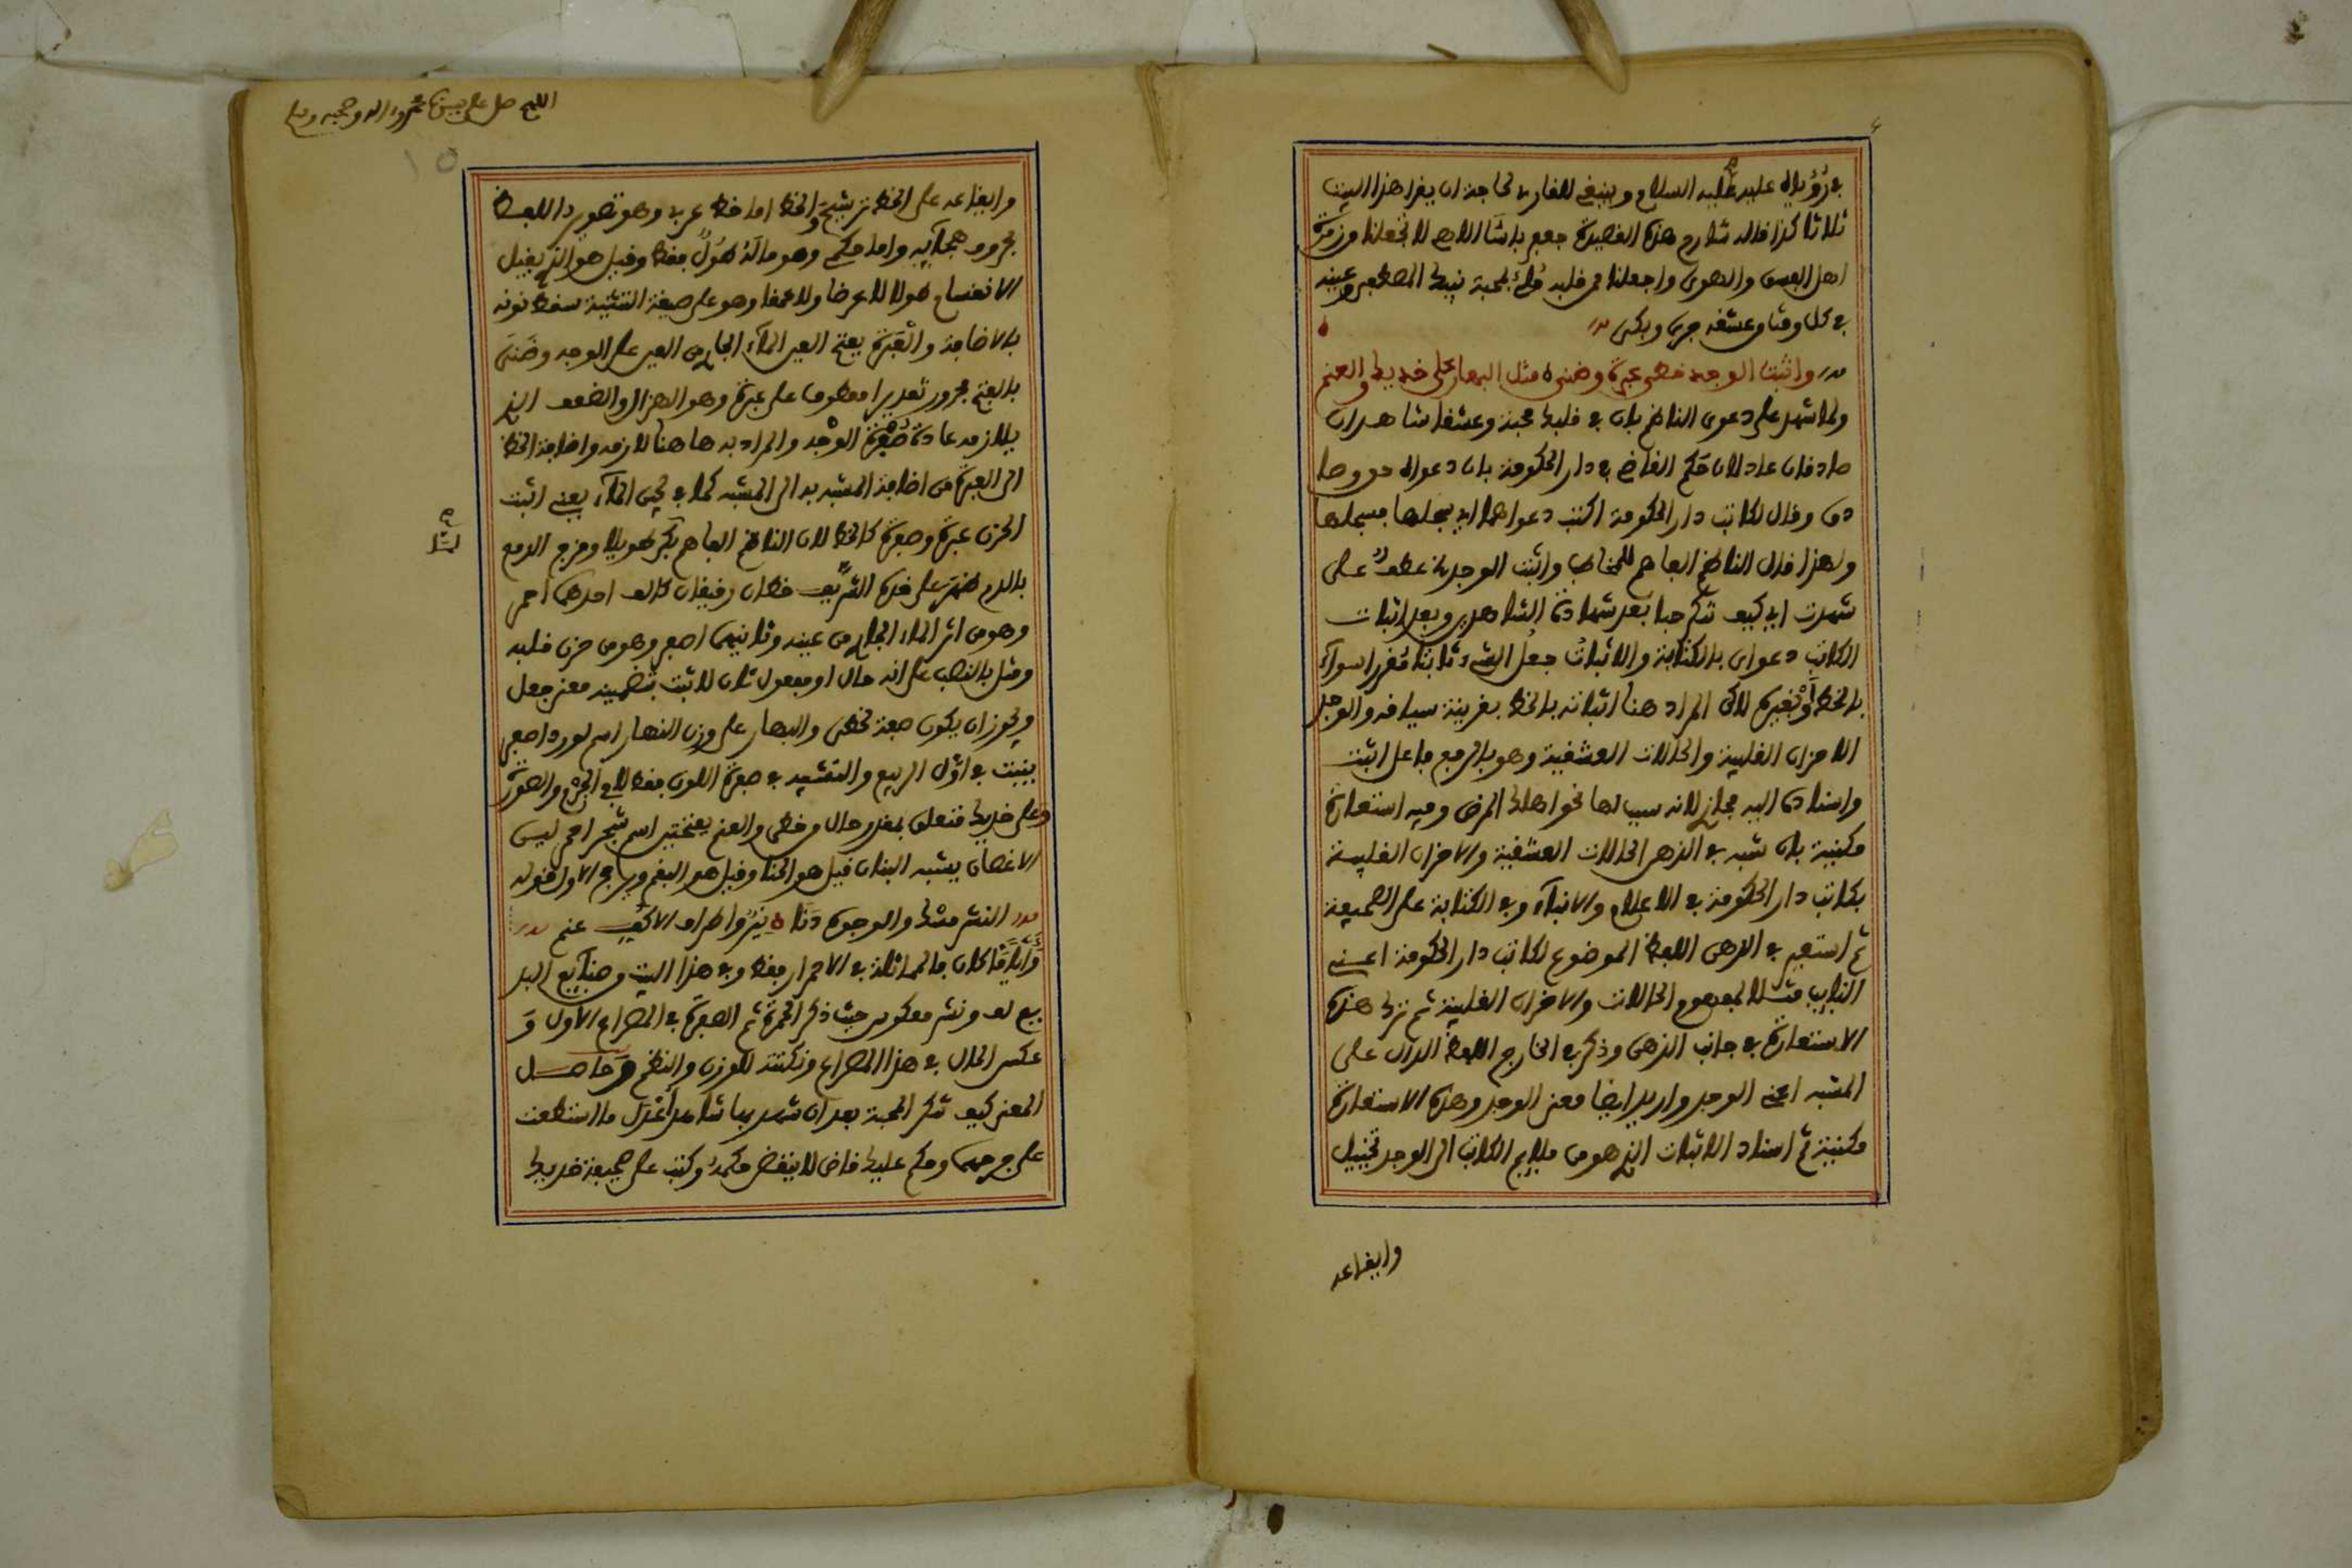 في رؤياه عليه عليه السلام وينبغي للقارئ لحاجة ان يقرا هذا البيت
ثلاثا كذا قاله شارح هذه القصيدة جعفر باشا اللهم لا تجعلنا من زمرة
اهل الفسق والهوى واجعلنا ممن قلبه ملئ بمحبة نبيك المصطفى وعينه
في كل وقت من عشقه جرى وبكى
واثبت الوجد خطى عبرة وضنى مثل البهار على خديك والعنم
ولما شهد على دعوى الناظم بان في قلبك محبة وعشقا شاهدان
صادقان عادلان حكم القاضي في دار الحكومة بان دعواه حق وصا
دق وقال لكاتب دار الحكومة اكتب دعواهما اي سجلها فسجلها
ولهذا قال الناظم الفاهم للمخاطب واثبت الوجد عطف على
شهدت اي كيف تنكر حبا بعد شهادة الشاهدين وبعد اثبات
الكاتب دعواى بالكتابة والاثبات جعل الشيء ثابتا مقررا سواء
بالخط او بغيره لاكن المراد هنا اثباته بالخط بقرينة سياقه والوجد
الاحزان القلبية والحالات العشقية وهو بالرفع فاعل اثبت
واسناده اليه مجاز لانه سبب لها نحو اهلك المرض وفيه استعارة
مكنية بان شبه في الذهن الحالات العشقية والاحزان القلبية
بكاتب دار الحكومة في الاعلام والانباء وفي الكتابة على الصحيفة
ثم استعير في الذهن اللفظ الموضوع لكاتب دار الحكومة اعني
النايب مثلا لمفهوم الحالات والاحزان القلبية ثم ترك هذه
الاستعارة في جانب الذهن وذكر في الخارج اللفظ الدال على
المشبه اعني الوجد واريد ايضا معنى الوجد وهذه الاستعارة
مكنية ثم اسناد الاثبات الذي هو من ملايم الكاتب الى الوجد تخييل
وايقاعه
اللهم صل على سيدنا محمد واله وصحبه وسلم
١٥
وايقاعه على الخط ترشيح والخط اما خط عربي وهو تصوير اللفظ
بحروف هجائه واما حكمي وهو ماله طول فقط وقيل هو الذي يقبل
الانقسام طولا لا عرضا ولا عمقا وهو على صيغة التثنية سقط نونه
بالاضافة والعبرة بفتح العين الماء الجاري من العين على الوجه وضنى
بالفتح مجرور تقديرا معطوف على عبرة وهو الهزال والضعف الذي
يلازمه عادة صفرة الوجه والمراد به هاهنا لازمه واضافة الخط
الى العبرة من اضافة المشبه به الى المشبه كما في لجين الماء يعني اثبت
الحزن عبرة وصفرة كالخط لان الناظم الفاهم بكى طويلا ومزج الدمع
بالدم فظهر على خده الشريف خطان رفيقان كالف احدهما احمر
وهو من اثر الماء الجاري من عينه وثانيهما اصفر وهو من حزن قلبه
ومثل بالنصب على انه حال او مفعول ثان لاثبت بتضمينه معنى جعل
ويجوز ان يكون صفة لخطى والبهار على وزن النهار اسم لورد اصفر
ينبت في اول الربيع والتشبيه في صفرة اللون فقط لا في الجرم والصورة
وعلى خديك متعلق بمقدر حال من خطى والعنم بفتحتين اسم شجر احمر لين
الاغصان يشبه البنان قيل هو الحنا وقيل هو البقم ويرجح الاول قوله
النشر مسك والوجوه دنا نير واطراف الاكف عنم
وايا ما كان فالمماثلة في الاحمرار فقط وفي هذا البيت من صنايع البد
يع لف ونشر معكوس حيث ذكر الحمرة ثم الصفرة في المصراع الاول و
عكس الحال في هذا المصراع ونكتته للوزن والنظم وحاصل
المعنى كيف تنكر المحبة بعد ان شهد بها شاهدا عدل ما استطعت
على جرحهما وحكم عليك قاض لا ينقض حكمه وكتب على صحيفة خديك